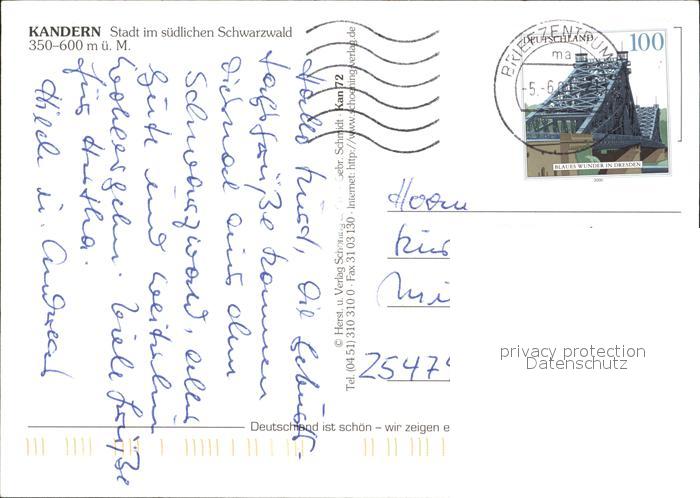 KANDERN Stadt im südlichen Schwarzwald
350–600 m ü. M.
Hallo Kurt, die Geburts-
tagsgrüße kommen
diesmal aus dem
Schwarzwald, alles
Gute und weiterhin
Wohlergehn. Viele Grüße
für Martha.
Hilde u. Andreas
© Herst. u. Verlag Schöning Gebr. Schmidt · Kan 72
Tel. (04 51) 310 310 0 · Fax 31 03 130 · Internet: http://www.schoening-verlag.de
BRIEFZENTRUM
ma
-5.-6
DEUTSCHLAND 100
BLAUES WUNDER IN DRESDEN
2000
Herrn
25474
privacy protection
Datenschutz
Deutschland ist schön – wir zeigen e